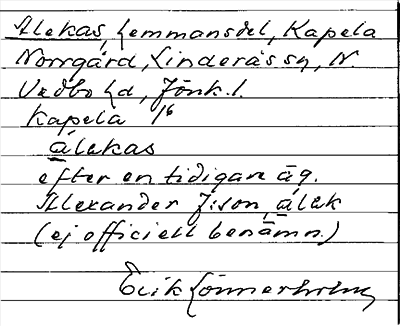 Alekas, hemmansdel, Kapela
Norrgård, Linderås sn, N.
Vedbo hd, Jönk. l.
Kapela 1/6
álekas
efter en tidigare äg.
Alexander J:son, álek
(ej officiell benämn.)
Erik Lönnerholm